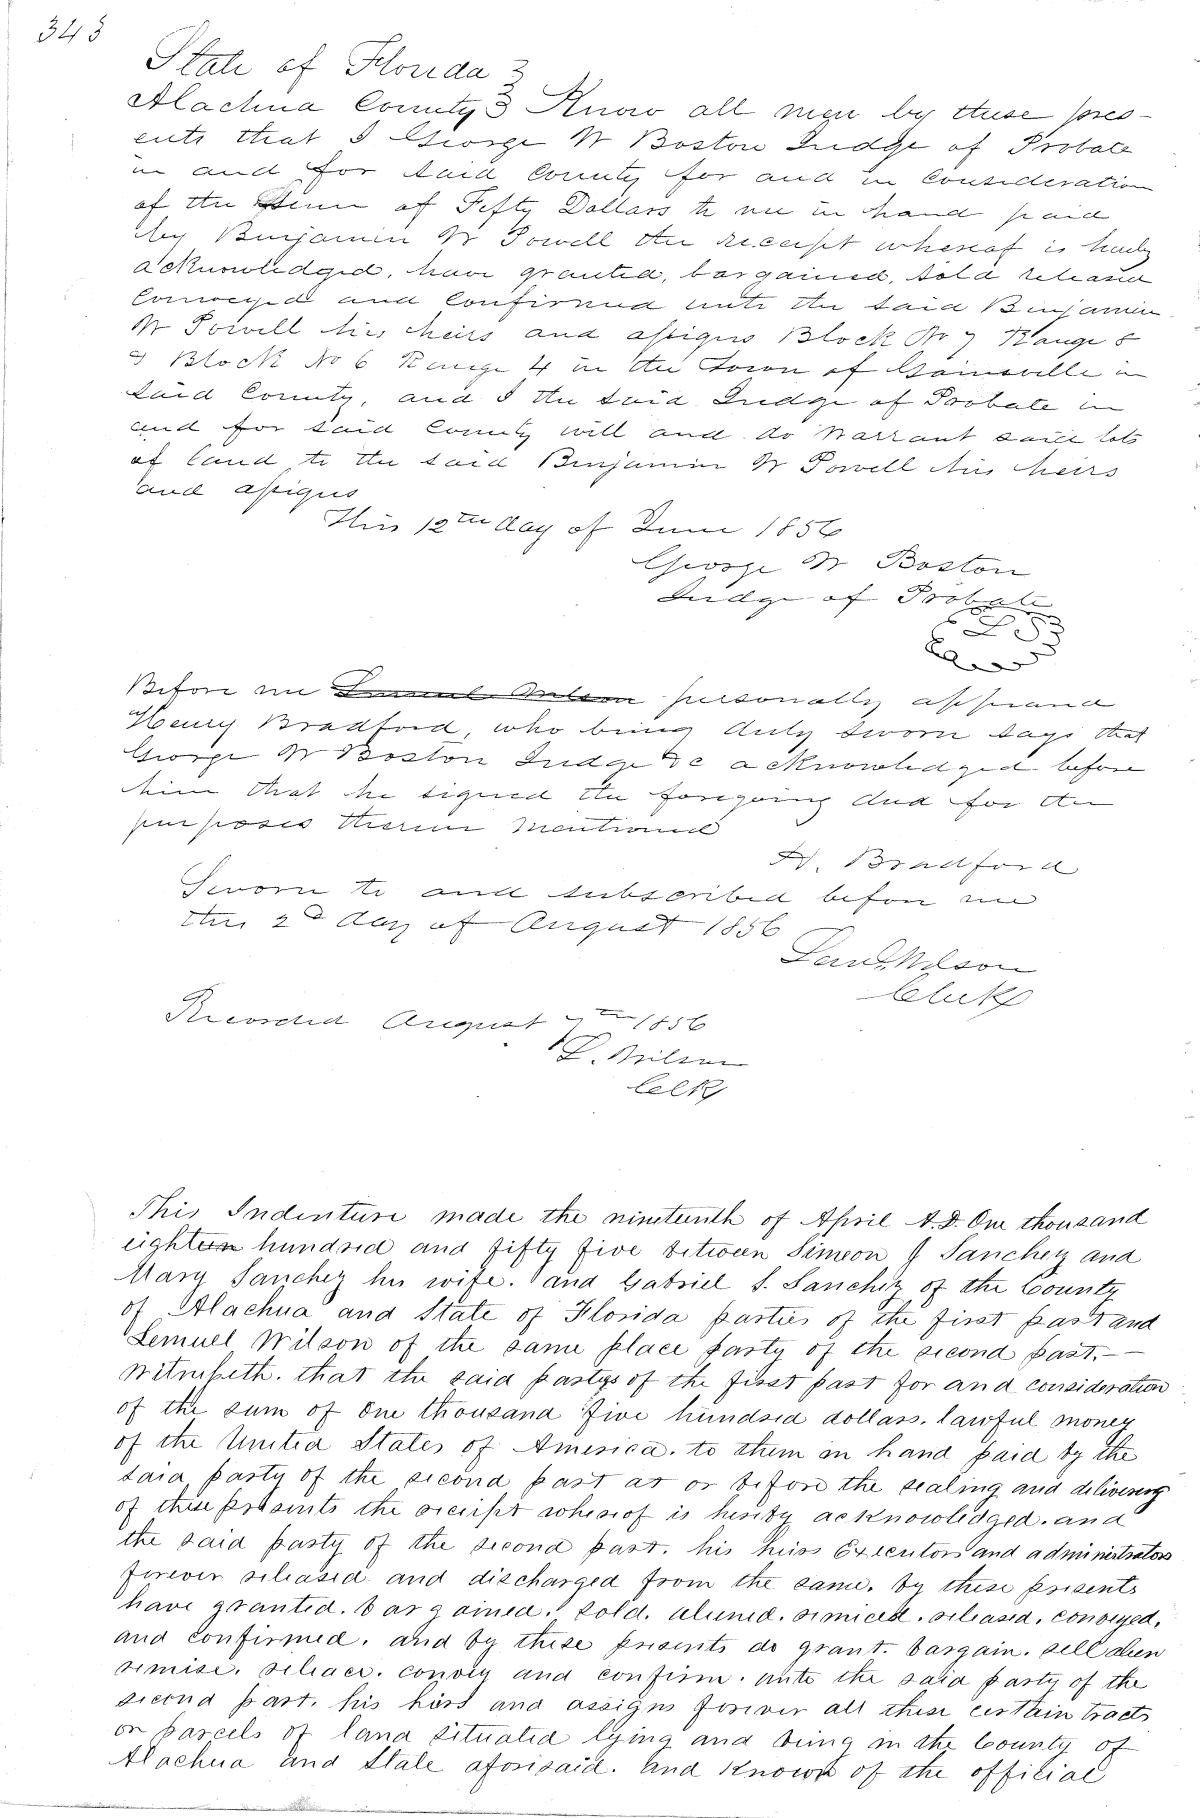 343
State of Florida }
Alachua County } Know all men by these pres-
ents that I George W Boston Judge of Probate
in and for said County for and in Consideration
of the Sum of Fifty Dollars to me in hand paid
by Benjamin W Powell the receipt whereof is hereby
acknowledged, have granted, bargained, sold released
Conveyed and Confirmed unto the said Benjamin
W Powell his heirs and assigns Block No 7 Range 5
& Block No 6 Range 4 in the Town of Gainsville in
said County, and I the said Judge of Probate in
and for said County will and do Warrant said lots
of land to the said Benjamin W Powell his heirs
and assigns
This 12th day of June 1856
George W Boston
Judge of Probate
L S
Before me Lemuel Wilson personally appeared
Henry Bradford, who being duly sworn says that
George W Boston Judge &c acknowledged before
him that he signed the foregoing deed for the
purposes therein mentioned
H. Bradford
Sworn to and subscribed before me
this 2d day of August 1856
Leml. Wilson
Clerk
Recorded August 7th 1856
L. Wilson
Celk
This Indenture made the nineteenth of April A.D. One thousand
eighteen hundred and fifty five between Simeon J Sanchez and
Mary Sanchez his wife. and Gabriel S. Sanchez of the County
of Alachua and State of Florida parties of the first part and
Lemuel Wilson of the same place party of the second part.--
Witnesseth. that the said partys of the first part for and consideration
of the sum of One thousand five hundred dollars. lawful money
of the United States of America. to them in hand paid by the
said party of the second part at or before the sealing and delivering
of these presents the receipt whereof is hereby acknowledged. and
the said party of the second part. his heirs Executors and administrators
forever released and discharged from the same. by these presents
have granted. bargained. sold. aliened. remiced. released. conveyed.
and confirmed. and by these presents do grant. bargain. sell alien
remise. release. convey and confirm. unto the said party of the
second part. his heirs and assigns forever all these certain tracts
or parcels of land situated lying and being in the County of
Alachua and State aforesaid. and known of the official